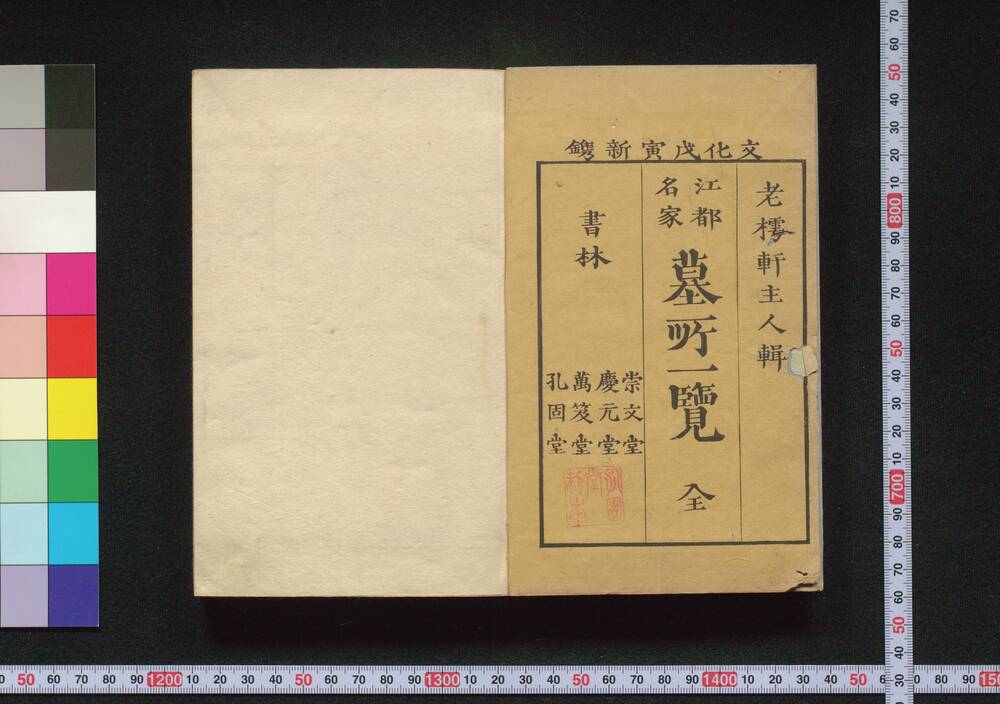 文化戊寅新鐫
老樗軒主人輯
江都
名家
墓所一覽 全
書林
崇文堂
慶元堂
萬笈堂
孔固堂
0 50 60 70 80 90 1200 10 20 30 40 50 60 70 80 90 1300 10 20 30 40 50 60 70 80 90 1400 10 20 30 40 50 6 80 90 150
70 60 50 40 30 20 10 800 90 80 70 60 50 40 30 20 10 700 90 80 70 60 50 40 30